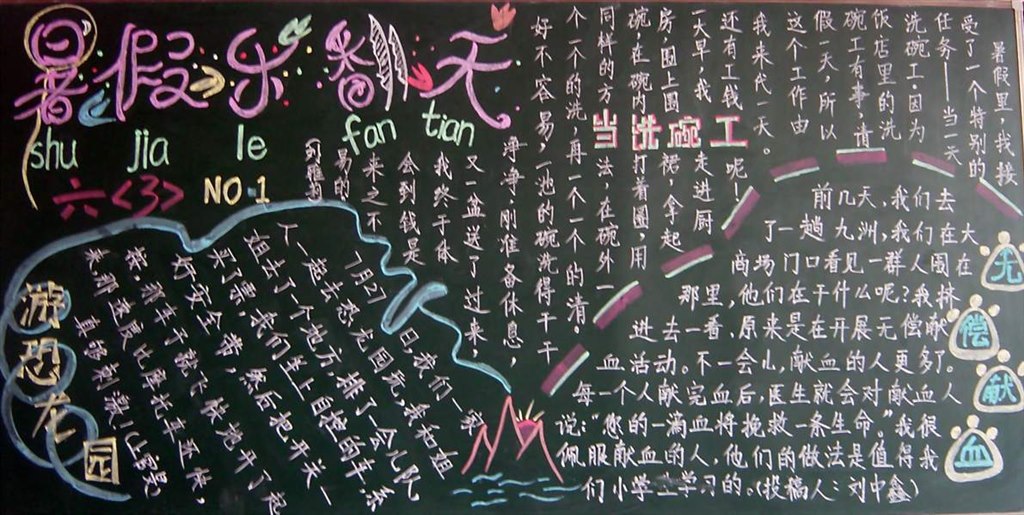 暑假乐翻天
shu jia le fan tian
六<3> NO.1
当洗碗工
暑假里，我接
受了一个特别的
任务——当一天
洗碗工。因为
饭店里的洗
碗工有事，请
假一天，所以
这个工作由
我来代一天。
还有工钱呢！
一天早，我走进厨
房，围上围裙，拿起
碗，在碗内打着圈，用
同样的方法，在碗外一
个一个的洗，再一个一个的清。
好不容易，一池的碗洗得干干
净净，刚准备休息，
又一盆送了过来，
我终于体
会到钱是
来之不
易的。
无偿献血
前几天，我们去
了一趟九洲，我们在大
商场门口看见一群人围在
那里，他们在干什么呢？我挤
进去一看，原来是在开展无偿献
血活动。不一会儿，献血的人更多了。
每一个人献完血后，医生就会对献血人
说：“您的一滴血将挽救一条生命。”我很
佩服献血的人，他们的做法是值得我
们小学生学习的。(投稿人：刘中鑫)
游恐龙园
7月27日，我们一家
人一起去恐龙园玩，我和姐
姐去了一个地方，排了一会儿队，
买了票，我们坐上自控的车，系
好安全带，然后把开关一
按，那车子就飞快地开了起
来，那速度比摩托车还快，
真够刺激！(上官昊)